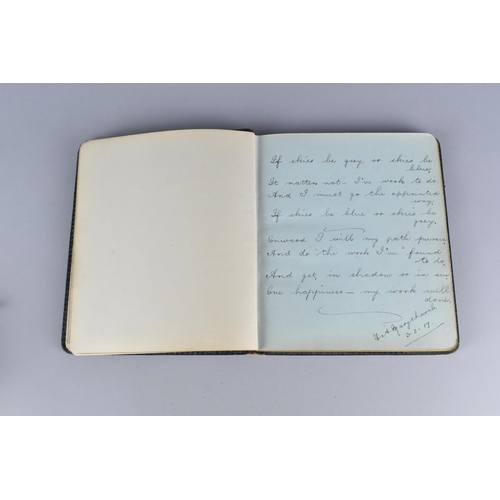 If skies be grey or skies be
blue,
It matters not - I've work to do
And I must go the appointed
way,
If skies be blue or skies be
grey.
Onward I will my path pursue
And do the work I've found
to do,
And get, in shadow or in sun
One happiness - my work well
done.
3.2.19.